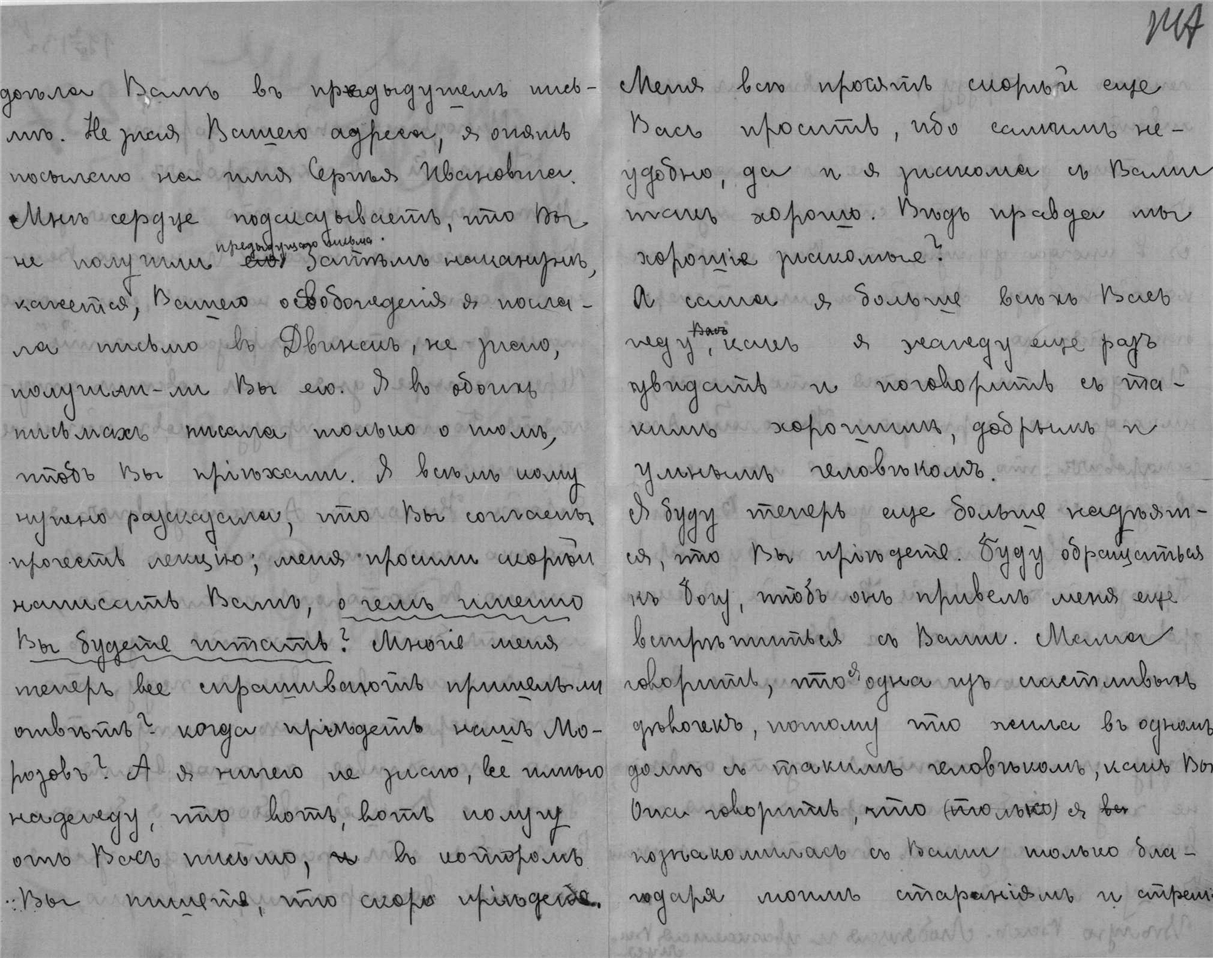 дотла Вамъ въ предыдущемъ пись-
мѣ. Не зная Вашего адреса, я опять
посылаю на имя Сергѣя Ивановича.
Мнѣ сердце подсказываетъ, что Вы
не получили предыдущаго письма. Затѣмъ наканунѣ,
кажется, Вашего освобожденія я посла-
ла письмо въ Двинскъ, не знаю,
получили-ли Вы его. Я въ обоихъ
письмахъ писала только о томъ,
чтобъ Вы пріѣхали. Я всѣмъ кому
нужно разсказала, что Вы согласны
прочесть лекцію; меня просили скорѣй
написать Вамъ, о чемъ именно
Вы будете читать? Многіе меня
теперь все спрашиваютъ пришелъ-ли
отвѣтъ? когда пріѣдетъ нашъ Мо-
розовъ? А я ничего не знаю, все имѣю
надежду, что вотъ, вотъ получу
отъ Васъ письмо, въ которомъ
Вы пишете, что скоро пріѣдете.
Меня всѣ просятъ скорѣй еще
Васъ просить, ибо самимъ не-
удобно, да и я знакома съ Вами
такъ хорошо. Вѣдь правда мы
хорошіе знакомые?
А сама я больше всѣхъ Васъ
жду, какъ я жажду еще разъ
увидать и поговорить съ та-
кимъ хорошимъ, добрымъ и
умнымъ человѣкомъ.
Я буду теперь еще больше надѣять-
ся, что Вы пріѣдете. Буду обращаться
къ Богу, чтобъ онъ привелъ меня еще
встрѣтиться съ Вами. Мама
говоритъ, что я одна изъ счастливыхъ
дѣвочекъ, потому что жила въ одномъ
домѣ съ такимъ человѣкомъ, какъ Вы
Она говоритъ, что (только) я
познакомилась съ Вами только бла-
годаря моимъ стараніямъ и стрем